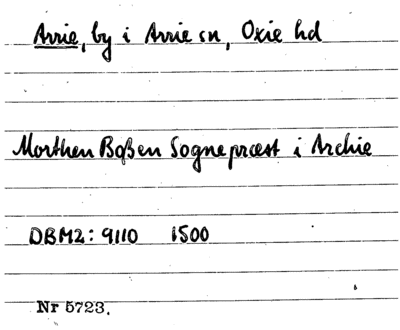 Arrie, by i Arrie sn, Oxie hd
Morthen Boßen Sognepræst i Archie
DBM2: 9110 1500
Nr 5723.